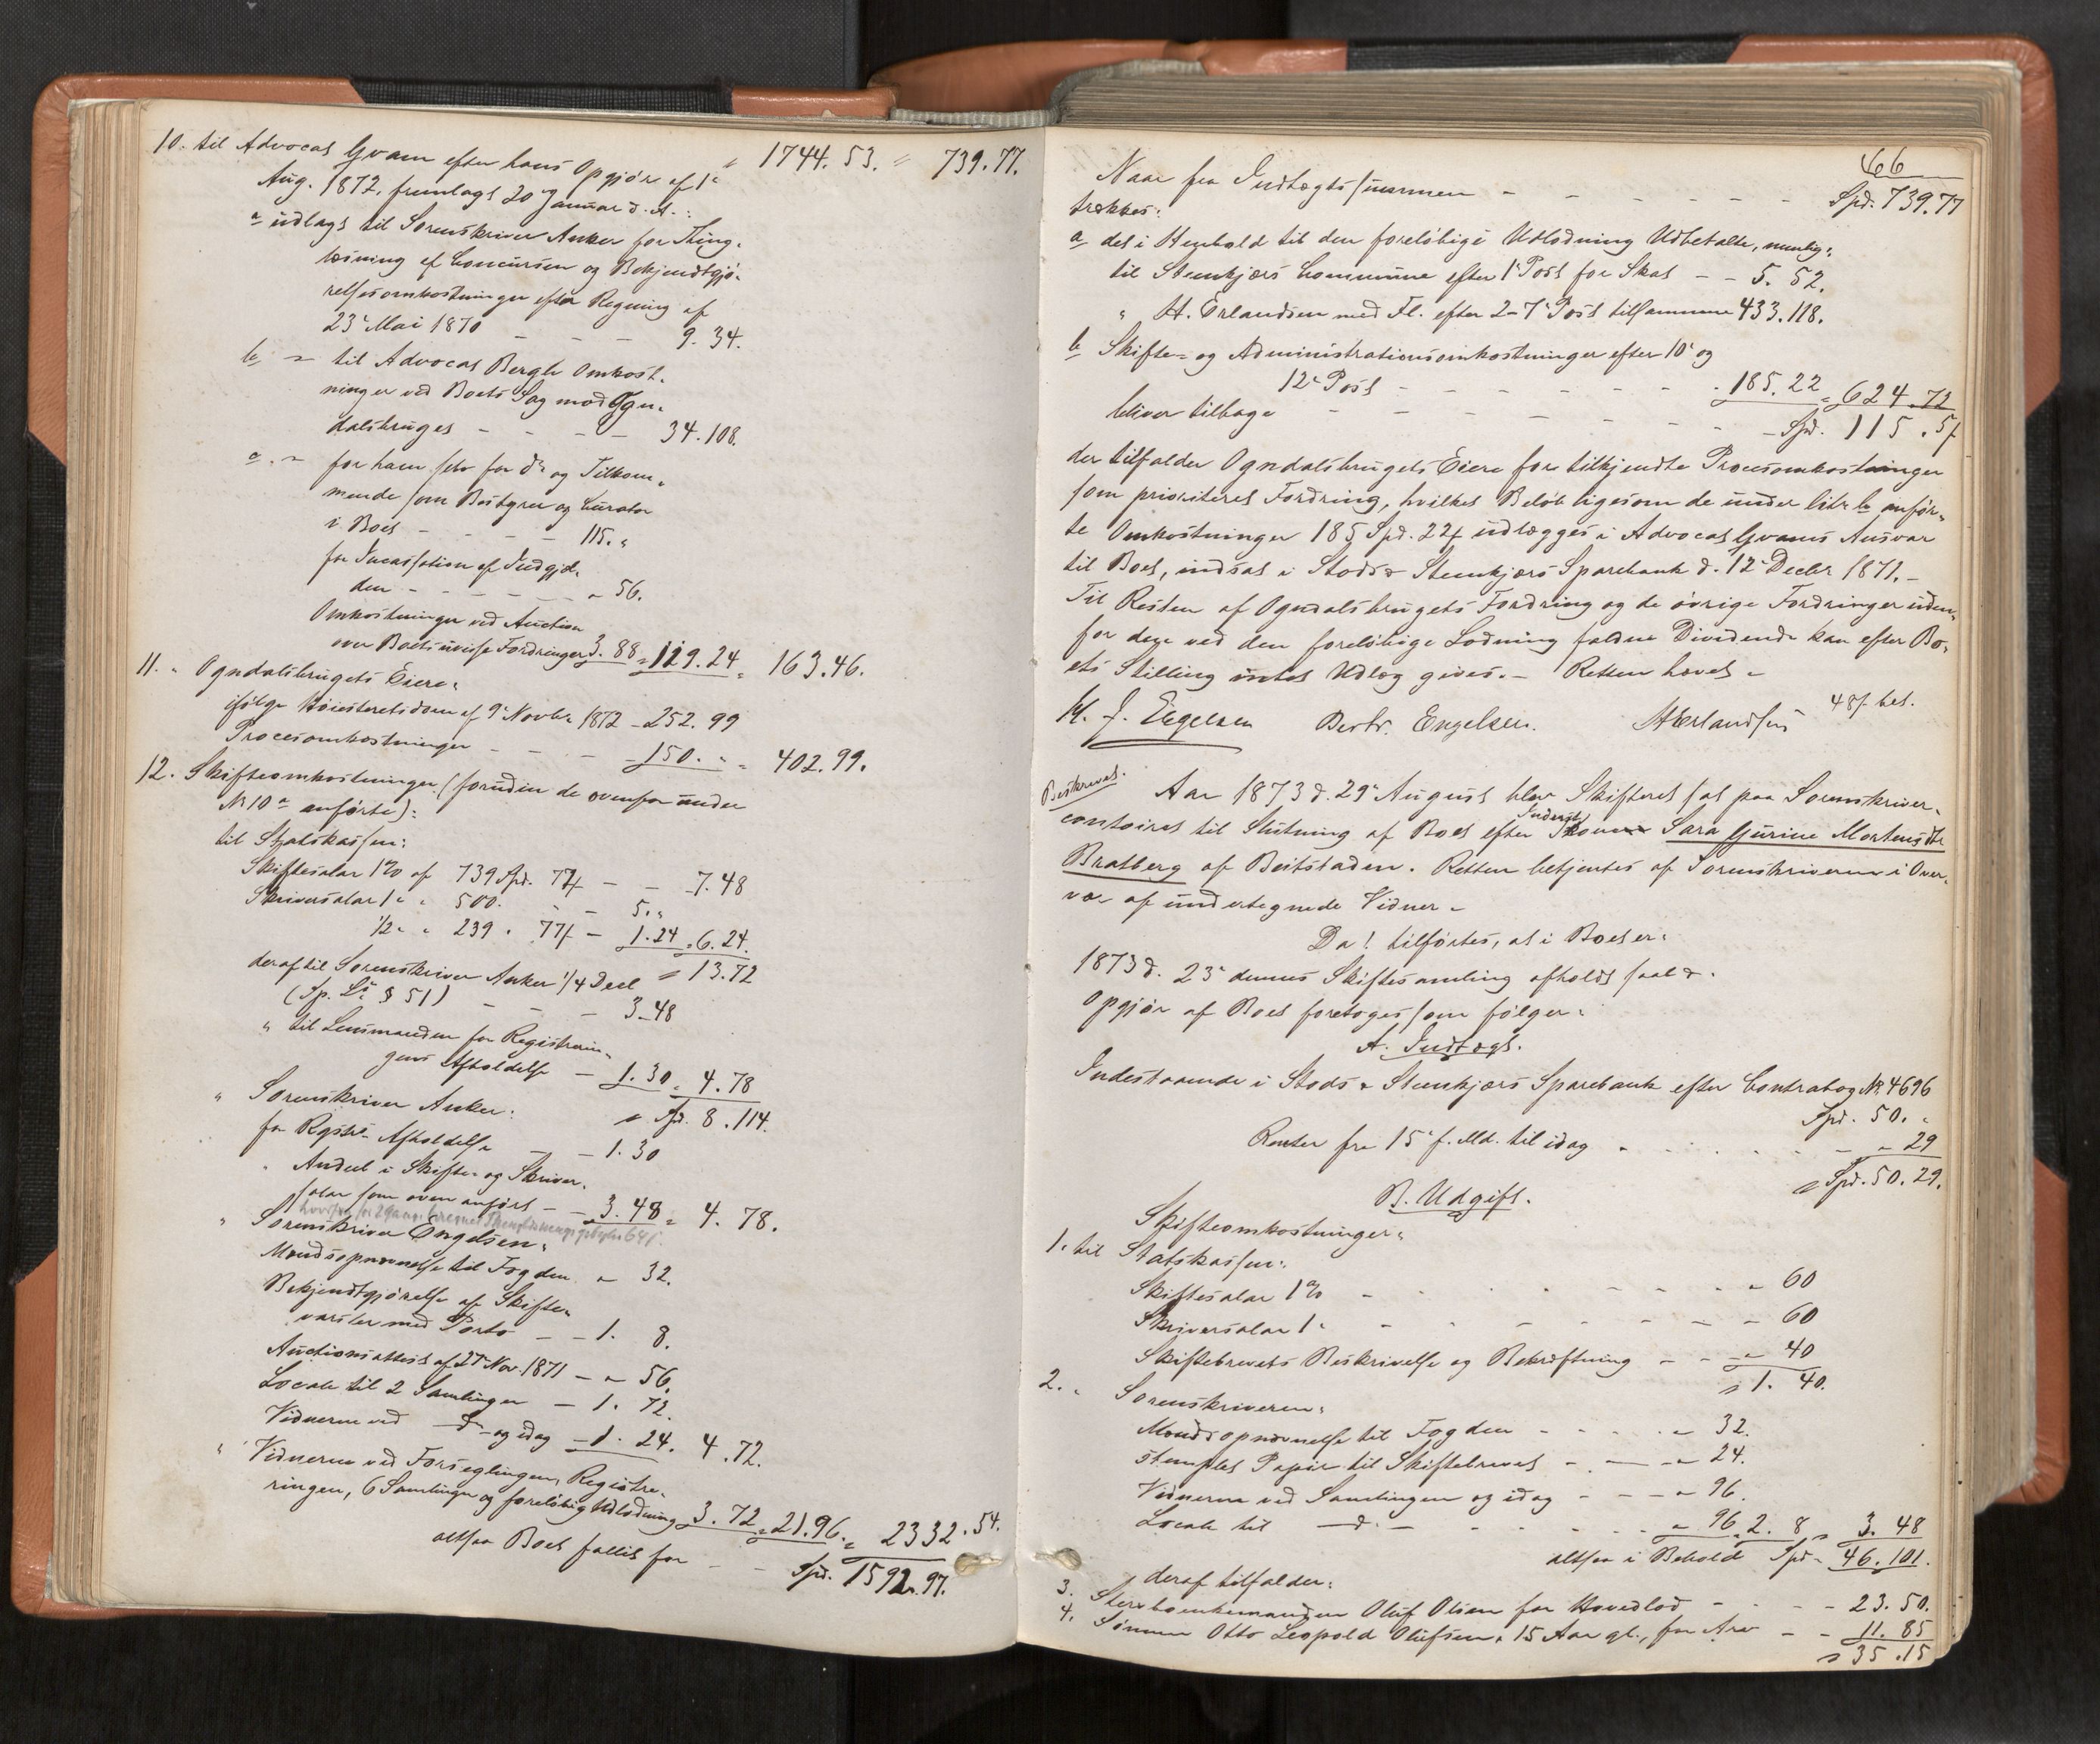 10. til Advocat Gram efter hans Opgjör af 1ᵉ " 1744. 53. " 739. 77.
Aug. 1872, fremlagt 20 Januar d. A.:
a udlagt til Sorenskriver Anker for Thing-
læsning af Concursen og Bekjendtgjö-
relsesomkostninger efter Regning af
23ᵉ Mai 1870 - - - 9. 34.
b, " til Advocat Bergh Omkost-
ninger ved Boets Sag mod Ogn-
dalsbruget - - - - 34. 108.
c. " for ham selv for dº og Tilkom-
mende som Bestyrer og Curator
i Boet - - - - 115. "
for Incassation af Indgjæl-
den - - - - - " 56.
Omkostninger ved Auction
over Boets uvisse Fordringer 3. 88 = 119. 24 = 163. 46.
11. " Ogndalsbrugets Eiere:
ifölge Höiesteretsdom af 9ᵉ Novbr 1872 - 252. 99
Procesomkostninger - - - 150. " = 402. 99.
12. Skifteomkostninger (foruden de ovenfor under
No 10 a anförte):
til Statskassen:
Skiftesalar 1% af 739 Spd. 77 ß - - 7. 48
Skriversalar 1 " " 500. - - 5. "
1/2 " " 239 " 77 ß - 1. 24 = 6. 24.
= 13. 72
deraf til Sorenskriver Anker 1/4 Deel
(Sp. L. § 51) - - - 3. 48
" til Lensmanden for Registrerin-
gens Afholdelse - 1. 30 = 4. 78
= Spd. 8. 114.
" Sorenskriver Anker:
for Regist. Afholdelse - - 1. 30
" Andeel i Skifte- og Skriver-
salar som oven anfört - - 3. 48 = 4. 78.
" Sorenskriver Engelsen:
Mondsopnævnelse til Fogden " 32.
Bekjendtgjörelse af Skifte-
varsler med Porto - - 1. 8.
Auctionsattest af 27 Nov. 1871 - " 56.
Locale til 2 Samlinger - 1. 72.
Vidnerne ved - dº - og idag - 1. 24. 4. 72.
" Vidnerne ved Forseglingen, Registre-
ringen, 6 Samlinger og foreløbig Udlodning 3. 72 = 21. 96. = 2332. 54.
altsaa Boet fallit for - - Spd. 1592. 97.
66
Naar fra Indtægtssummen - - - - - - Spd. 739. 77
trækkes:
a det i Henhold til den foreløbige Udlodning Udbetalte, nemlig:
til Stenkjærs Commune efter 1ᵉ Post for Skat - - 5. 52.
" H. Erlandsen med Fl. efter 2-7ᵉ Post tilsammen 433. 118.
b Skifte- og Administrationsomkostninger efter 10ᵉ og
12ᵉ Post - - - - - - - 185. 22 = 624. 72
bliver tilbage - - - - - - - Spd. 115. 5 ß
der tilfalder Ogndalsbrugets Eiere for tilkjendte Procesomkostninger
som prioriteret Fordring, hvilket Beløb ligesom de under litr b anför-
te Omkostninger 185 Spd. 22 ß udlægges i Advocat Grams Ansvar
til Boet, indsat i Stods & Stenkjærs Sparebank d. 12ᵉ Decbr 1871. -
Til Resten af Ogndalsbrugets Fordring og de övrige Fordringer uden-
for deze ved den foreløbige Lodning faldne Dividende kan efter Bo-
ets Stilling intet Udlæg gives. - Retten hævet -
M. J. Engelsen Berhr. Engelsen. H Erlandsen 48 ß bet.
Beskrevet.
Aar 1873 d. 29ᵉ August blev Skifteret sat paa Sorenskriver-
contoiret til Slutning af Boet efter Inderst Konen Sara Gurine Mortensdtr
Bratberg af Beitstaden. Retten betjentes af Sorenskriveren i Over-
vær af undertegnede Vidner -
Da! tilførtes, at i Boet er:
1873 d. 23ᵉ dennes Skiftesamling afholdt saal.
Opgjör af Boet foretoges som fölger:
A. Indtægt.
Indestaaende i Stods & Stenkjærs Sparebank efter Contrabog No 4696
Spd. 50. "
Renter fra 15ᵉ f. Md. til idag - - - - - " 29
= Spd. 50. 29.
B. Udgift.
Skifteomkostninger:
1. til Statskassen:
Skiftesalar 1% - - - - - - - " 60
Skriversalar 1 " - - - - - - " 60
Skiftebrevets Beskrivelse og Bekræftning - - " 40
= 1. 40.
2. " Sorenskriveren:
Mondsopnævnelse til Fogden - - - - " 32.
stemplet Papir til Skiftebrevet - - - " 24.
Vidnerne ved Samlingen og idag - - - " 96.
Locale til - d. - - - - - " 96. 2. 8 = 3. 48
altsaa i Behold Spd. 46. 101.
deraf tilfalder:
3. Sterboenkemanden Oluf Olsen for Hovedlod - - - 23. 50.
4. Sönnen Otto Leopold Olufsen, 15 Aar gl., for Arv - - 11. 85
= 35. 15